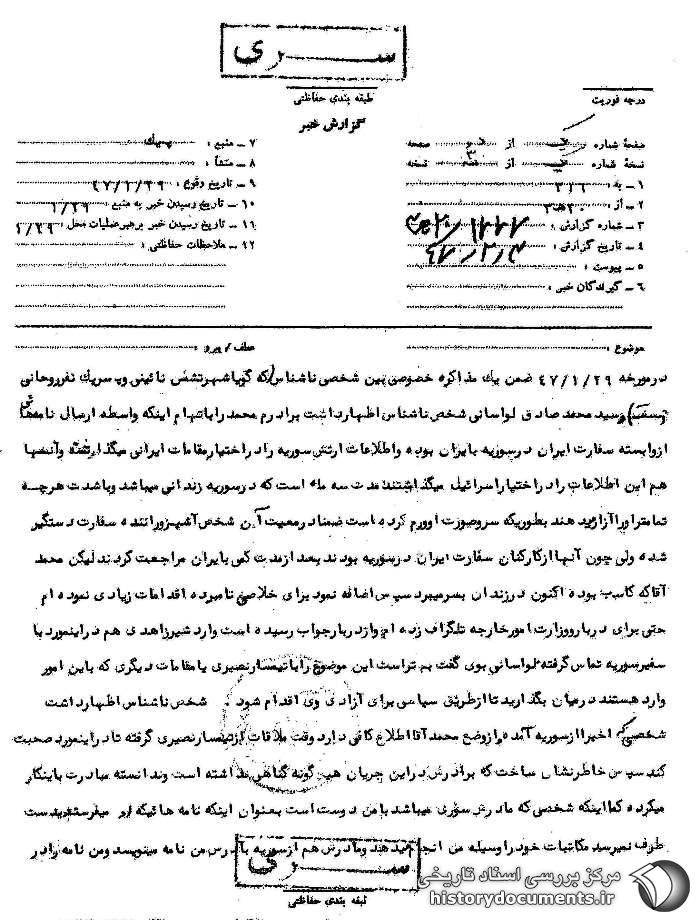 سری
طبقه بندی حفاظتی
گزارش خبر
درجه فوریت
صفحهٔ شماره از صفحه
نسخهٔ شماره از نسخه
۱ ـ به : ۳۱۶
۲ ـ از :
۳ ـ شماره گزارش :
۴ ـ تاریخ گزارش : ۴۷/۲/۴
۵ ـ پیوست :
۶ ـ گیرندگان خبر :
۷ ـ منبع :
۸ ـ منشأ :
۹ ـ تاریخ وقوع : ۴۷/۱/۲۹
۱۰ ـ تاریخ رسیدن خبر به منبع : ۱/۲۹
۱۱ ـ تاریخ رسیدن خبر برهبر عملیات محل : ۱/۲۹
۱۲ ـ ملاحظات حفاظتی :
موضوع :
عطف / پیرو :
درمورخه ۴۷/۱/۲۹ ضمن یک مذاکره خصوصی بین شخصی ناشناس (که گویا شهرتشش نائینی و پسر یک نفر روحانی
است) و سید محمد صادق لواسانی شخص ناشناس اظهار داشت برادرم محمد را باتهام اینکه واسطه ارسال نامه هائی
از وابسته سفارت ایران در سوریه بایران بوده و اطلاعات ارتش سوریه را در اختیار مقامات ایرانی میگذاشته و آنها
هم این اطلاعات را در اختیار اسرائیل میگذاشتند مدت سه ماه است که در سوریه زندانی میباشد و باشدت هرچه
تمامتر او را آزار میدهند بطوریکه سر و صورت او ورم کرده است ضمنا در معیت آن شخص آشپز و راننده سفارت دستگیر
شده ولی چون آنها از کارکنان سفارت ایران در سوریه بودند بعد از مدت کمی بایران مراجعت کردند لیکن محمد
آقا که کاسب بوده اکنون در زندان بسر میبرد سپس اضافه نمود برای خلاصی نامبرده اقدامات زیادی نموده ام
حتی برای دربار و وزارت امور خارجه تلگراف زده ام و از دربار جواب رسیده است وارد شیر زاهدی هم در اینمورد با
سفیر سوریه تماس گرفته لواسانی بوی گفت بهتر است این موضوع را با تیمسار نصیری یا مقامات دیگری که باین امور
وارد هستند در میان بگذارید تا از طریق سیاسی برای آزادی وی اقدام شود . شخص ناشناس اظهار داشت
شخصی که اخیرا از سوریه آمده و از وضع محمد آقا اطلاع کافی دارد وقت ملاقات از تیمسار نصیری گرفته تا در اینمورد صحبت
کند سپس خاطرنشان ساخت که برادرش در این جریان هیچ گونه گناهی نداشته است و ندانسته مبادرت باینکار
میکرده کما اینکه شخصی که مادرش سوری میباشد با من دوست است بعنوان اینکه نامه هائیکه او میفرستد بدست
طرف نمیرسد مکاتبات خود را وسیله من انجام میدهد و مادرش هم از سوریه بآدرس من نامه مینویسد و من نامه را در
سری
طبقه بندی حفاظتی
مرکز بررسی اسناد تاریخی
historydocuments.ir